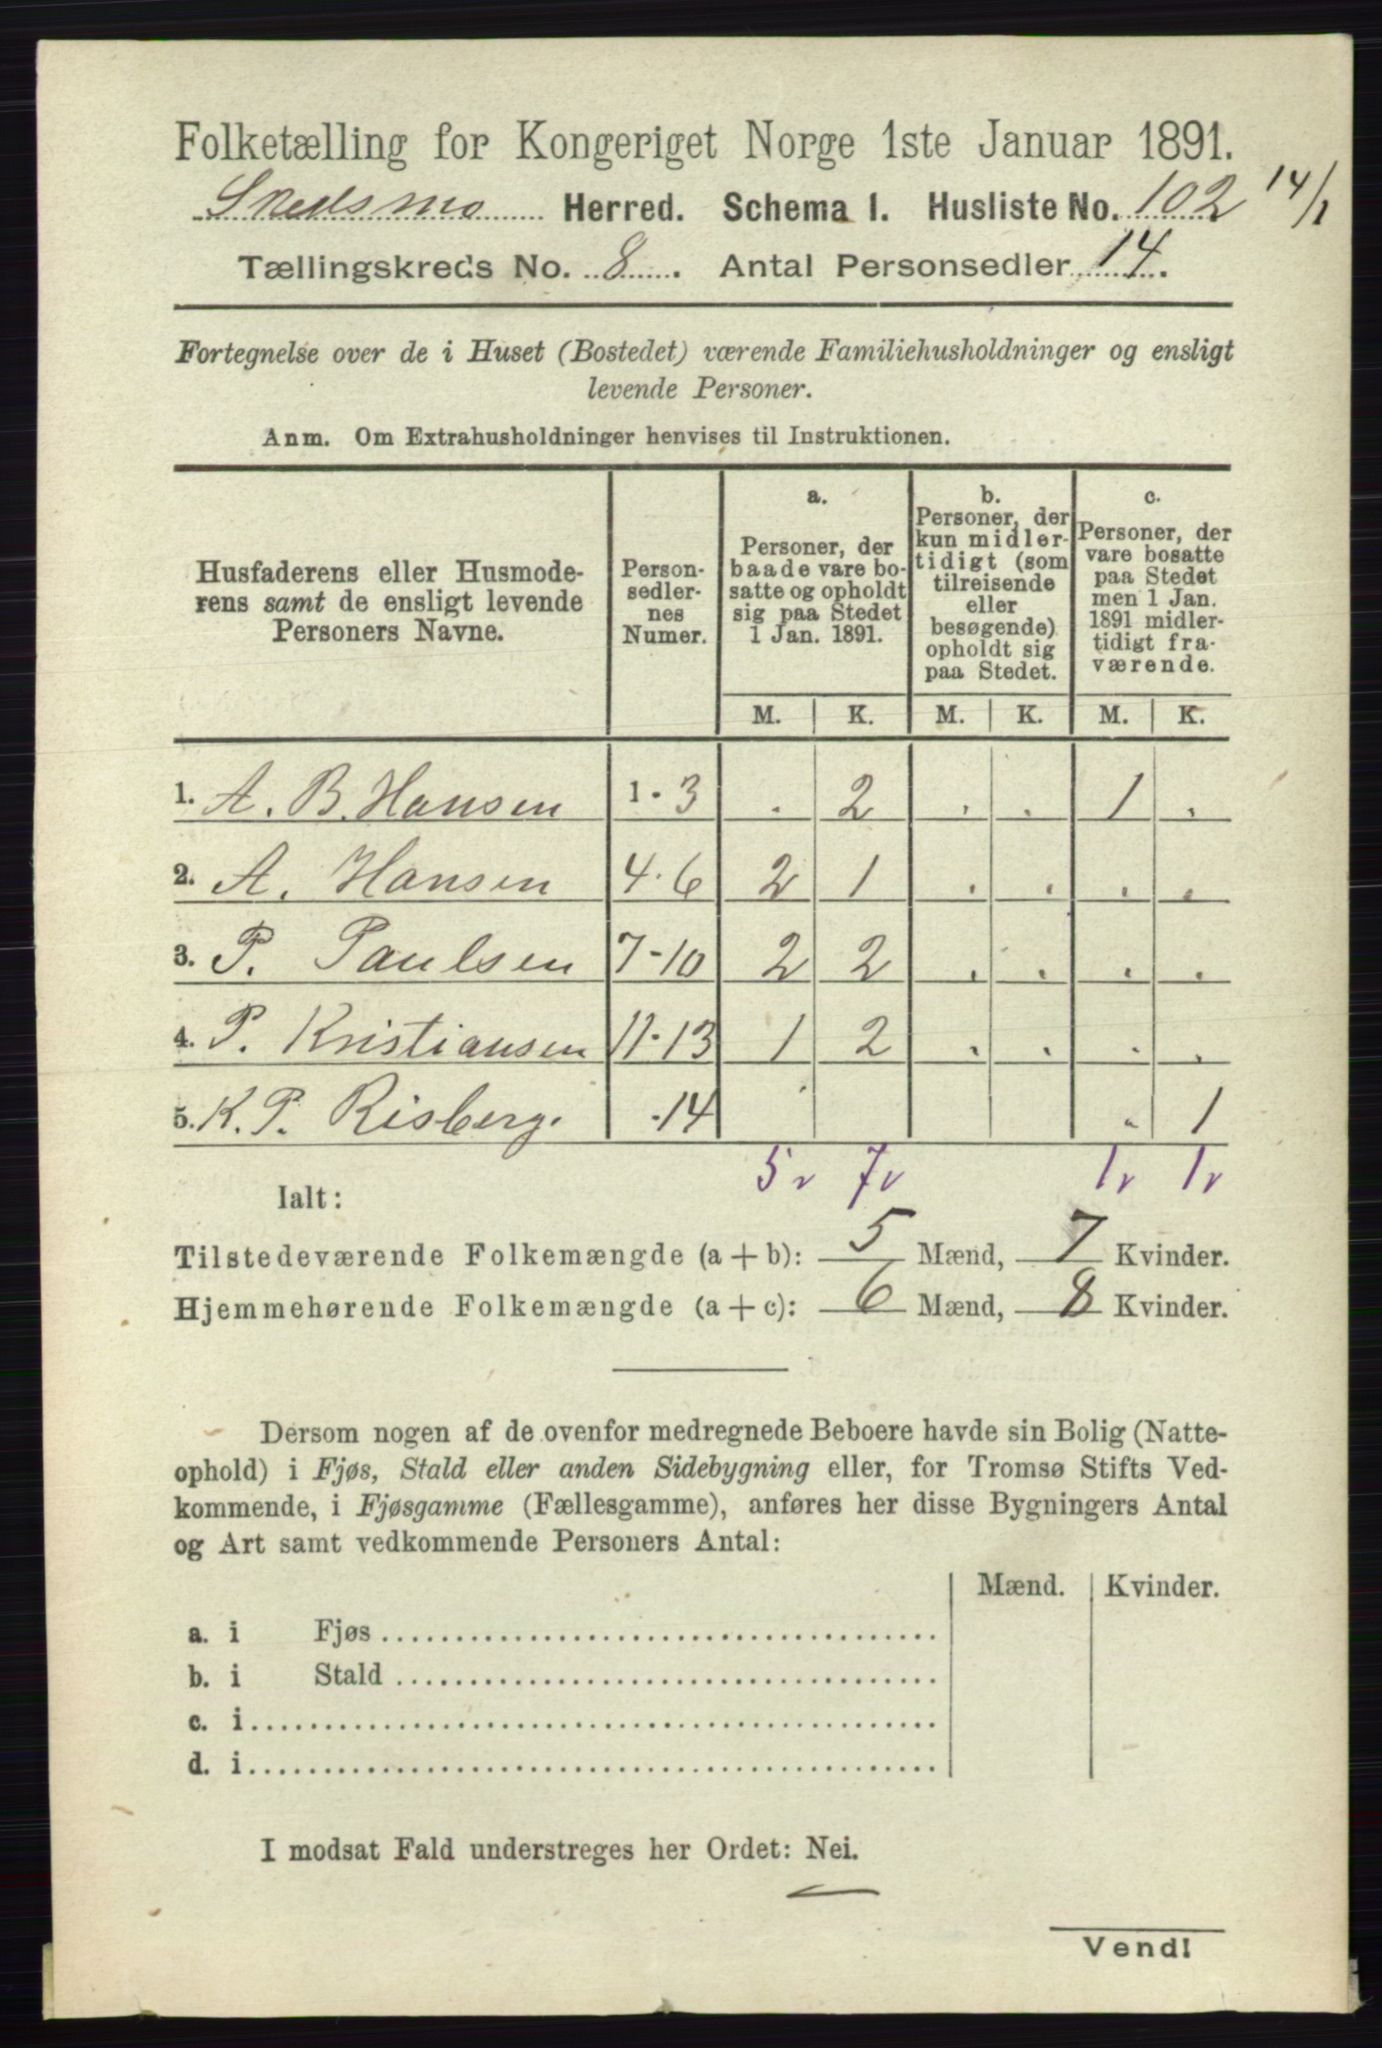 Folketælling for Kongeriget Norge 1ste Januar 1891.
Skedsmo Herred. Schema I. Husliste No. 102 14/1
Tællingskreds No. 8. Antal Personsedler 14.
Fortegnelse over de i Huset (Bostedet) værende Familiehusholdninger og ensligt
levende Personer.
Anm. Om Extrahusholdninger henvises til Instruktionen.
Husfaderens eller Husmode-
rens samt de ensligt levende
Personers Navne.
Person-
sedler-
nes
Numer.
a.
Personer, der
baade vare bo-
satte og opholdt
sig paa Stedet
1 Jan. 1891.
b.
Personer, der
kun midler-
tidigt (som
tilreisende
eller
besøgende)
opholdt sig
paa Stedet.
c.
Personer, der
vare bosatte
paa Stedet
men 1 Jan.
1891 midler-
tidigt fra-
værende.
M. K. M. K. M. K.
1. A. B. Hansen 1-3 . 2 . . 1 .
2. A. Hansen 4-6 2 1 . . . .
3. P. Paulsen 7-10 2 2 . . . .
4. P. Kristiansen 11-13 1 2 . . . .
5. K. P. Risberg. -14 . 1
5 v 7 v 1 v 1 v
Ialt:
Tilstedeværende Folkemængde (a + b): 5 Mænd, 7 Kvinder.
Hjemmehørende Folkemængde (a + c): 6 Mænd, 8 Kvinder.
Dersom nogen af de ovenfor medregnede Beboere havde sin Bolig (Natte-
ophold) i Fjøs, Stald eller anden Sidebygning eller, for Tromsø Stifts Ved-
kommende, i Fjøsgamme (Fællesgamme), anføres her disse Bygningers Antal
og Art samt vedkommende Personers Antal:
Mænd. Kvinder.
a. i Fjøs
b. i Stald
c. i
d. i
I modsat Fald understreges her Ordet: Nei.
Vend!